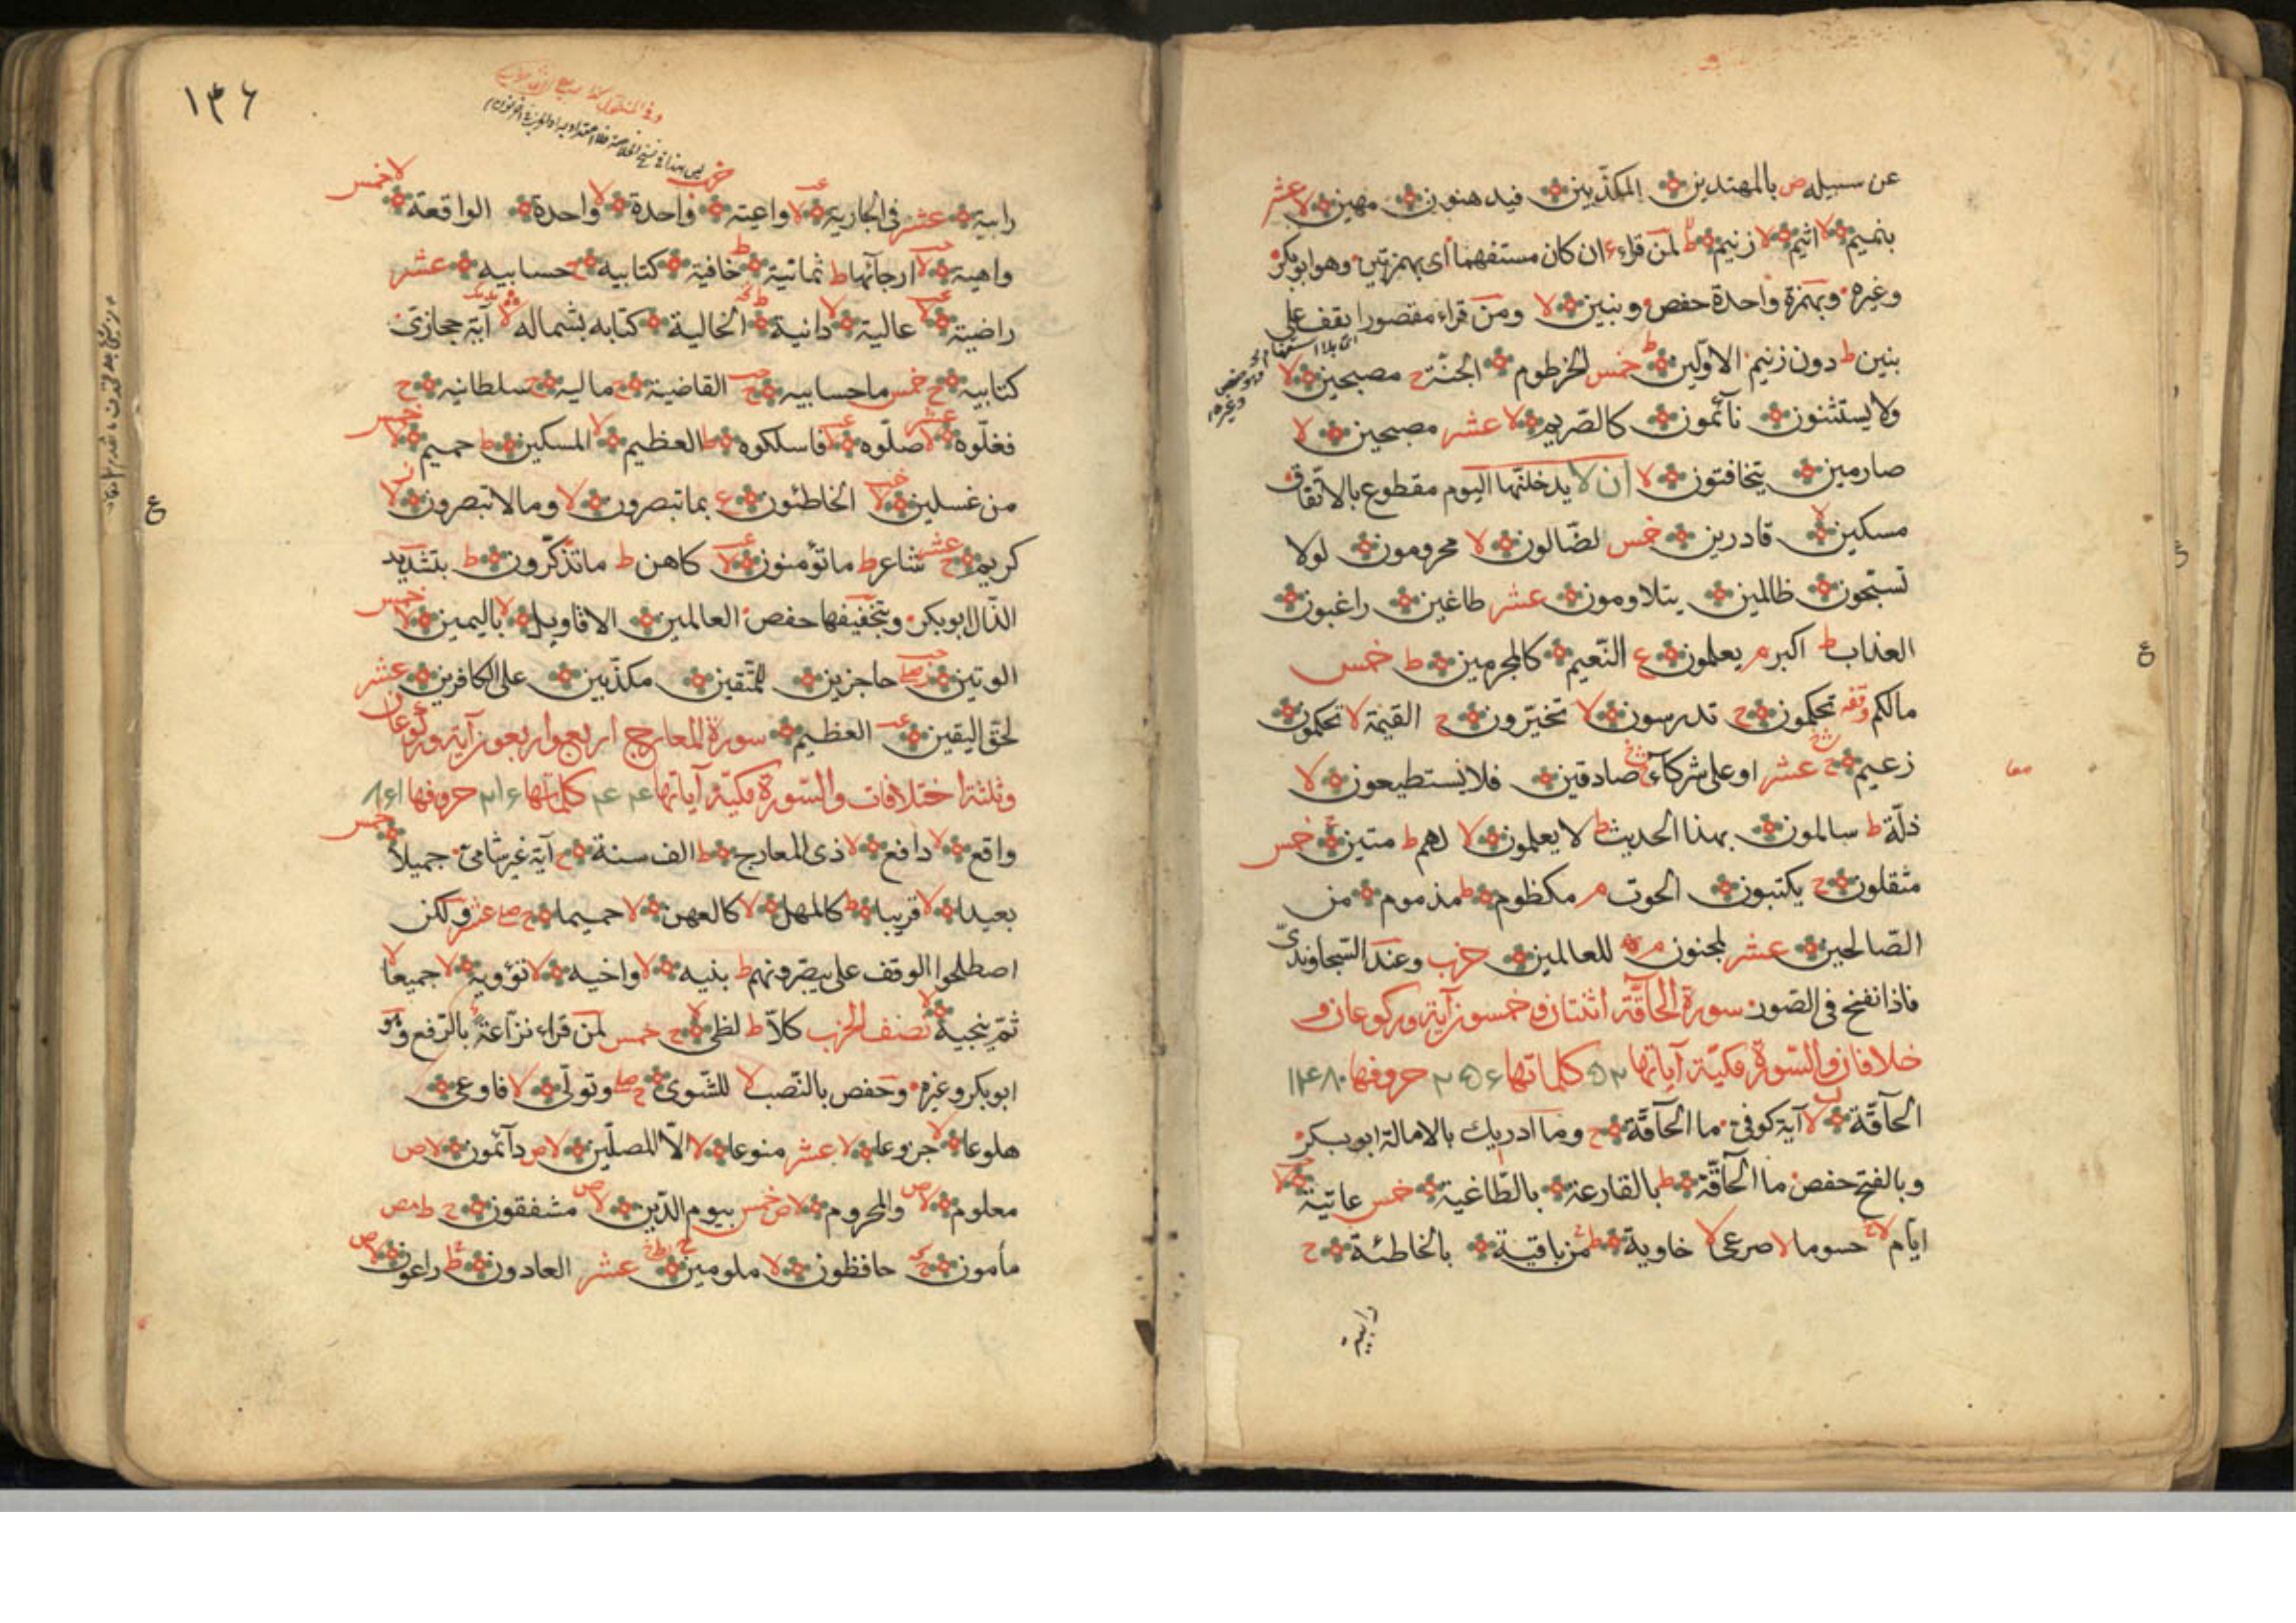 عن سبيله ص بالمهتدين المكذّبين فيدهنون مهين لا عشر
بنميم لا اثيم لا زنيم ط لمن قراء ءان كان مستفهما أى بهمزتين وهو ابوبكر
وغيره وبهمزة واحدة حفص وبنين لا ومن قراء مقصورا يقف على
بنين ط دون زنيم الاوّلين ط خمس الخرطوم الجنّة ح مصبحين لا
ولا يستثنون نآئمون كالصّريم لا عشر مصبحين لا
صارمين يتخافتون لا ان لا يدخلنّها اليوم مقطوع بالاتّفاق
مسكين لا قادرين خمس لضّالون لا محرومون لولا
تسبّحون ظالمين يتلاومون عشر طاغين راغبون
العذاب ط اكبر م يعلمون ع النّعيم كالمجرمين ط خمس
مالكم وقفه تحكمون ح تدرسون لا تخيّرون ح القيمة لا تحكمون
زعيم ح عشر او على شركاء صادقين فلا يستطيعون لا
ذلّة ط سالمون بهذا الحديث ط لا يعلمون لا لهم ط متين خمس
مثقلون ح يكتبون الحوت م مكظوم ط مذموم من
الصّالحين عشر لمجنون م للعالمين حزب وعند السّجاوندىّ
فاذا نفخ فى الصّور سورة الحاقّة اثنتان و خمسون آية وركوعان و
خلافان والسّورة مكيّة آياتها ٥٢ كلماتها ٢٥٦ حروفها ١٤٨٠
الحآقّة لا آية كوفىّ ما الحآقّة ح وما ادريك بالامالة ابوبكر
وبالفتح حفص ما الحآقّة ط بالقارعة بالطّاغية خمس عاتية لا
ايّام لا حسوما لا صرعى لا خاوية ط من باقية بالخاطئة ح
رابية
١٣٦
رابية عشر فى الجارية لا واعية واحدة لا واحدة الواقعة لا خمس
واهية لا ارجآئها ط ثمانية ط خافية كتابيه ح حسابيه عشر
راضية لا عالية لا دانية الخالية كتابه بشماله لا آية حجازىّ
كتابيه ح خمس ما حسابيه ح القاضية ح ماليه ح سلطانيه ح
فغلّوه لا عشر صلّوه لا فاسلكوه ط العظيم لا المسكين ط حميم لا خمس
من غسلين لا الخاطئون ع بما تبصرون لا وما لا تبصرون لا
كريم ح عشر شاعر ط ما تؤمنون لا كاهن ط ما تذّكّرون ط بتشديد
الذّال ابوبكر وبتخفيفها حفص العالمين الاقاويل لا باليمين لا خمس
الوتين حاجزين للمتّقين مكذّبين على الكافرين عشر
لحقّ اليقين العظيم سورة المعارج اربع واربعون آية وركوعان
وثلثة اختلافات والسّورة مكيّة آياتها ٤٤ كلماتها ٢١٦ حروفها ٨٦١
واقع لا دافع لا ذى المعارج ط الف سنة ح آية غير شامىّ جميلا خمس
بعيدا لا قريبا ط كالمهل لا كالعهن لا حميما ح عشر ولكن
اصطلحوا الوقف على يبصّرونهم ط بنيه لا واخيه لا تؤويه لا جميعا لا
ثمّ ينجيه لا نصف الحزب كلاّ ط لظى لا ح خمس لمن قراء نزّاعة بالرّفع وهو
ابوبكر وغيره وحفص بالنّصب لا للشّوى وتولّى لا فاوعى
هلوعا لا جزوعا لا عشر منوعا لا الاّ المصلّين لا ص دآئمون لا ص
معلوم لا ص والمحروم لا ص خمس بيوم الدّين لا ص مشفقون ح
مأمون حافظون لا ملومين عشر العادون ط راعون لا ص